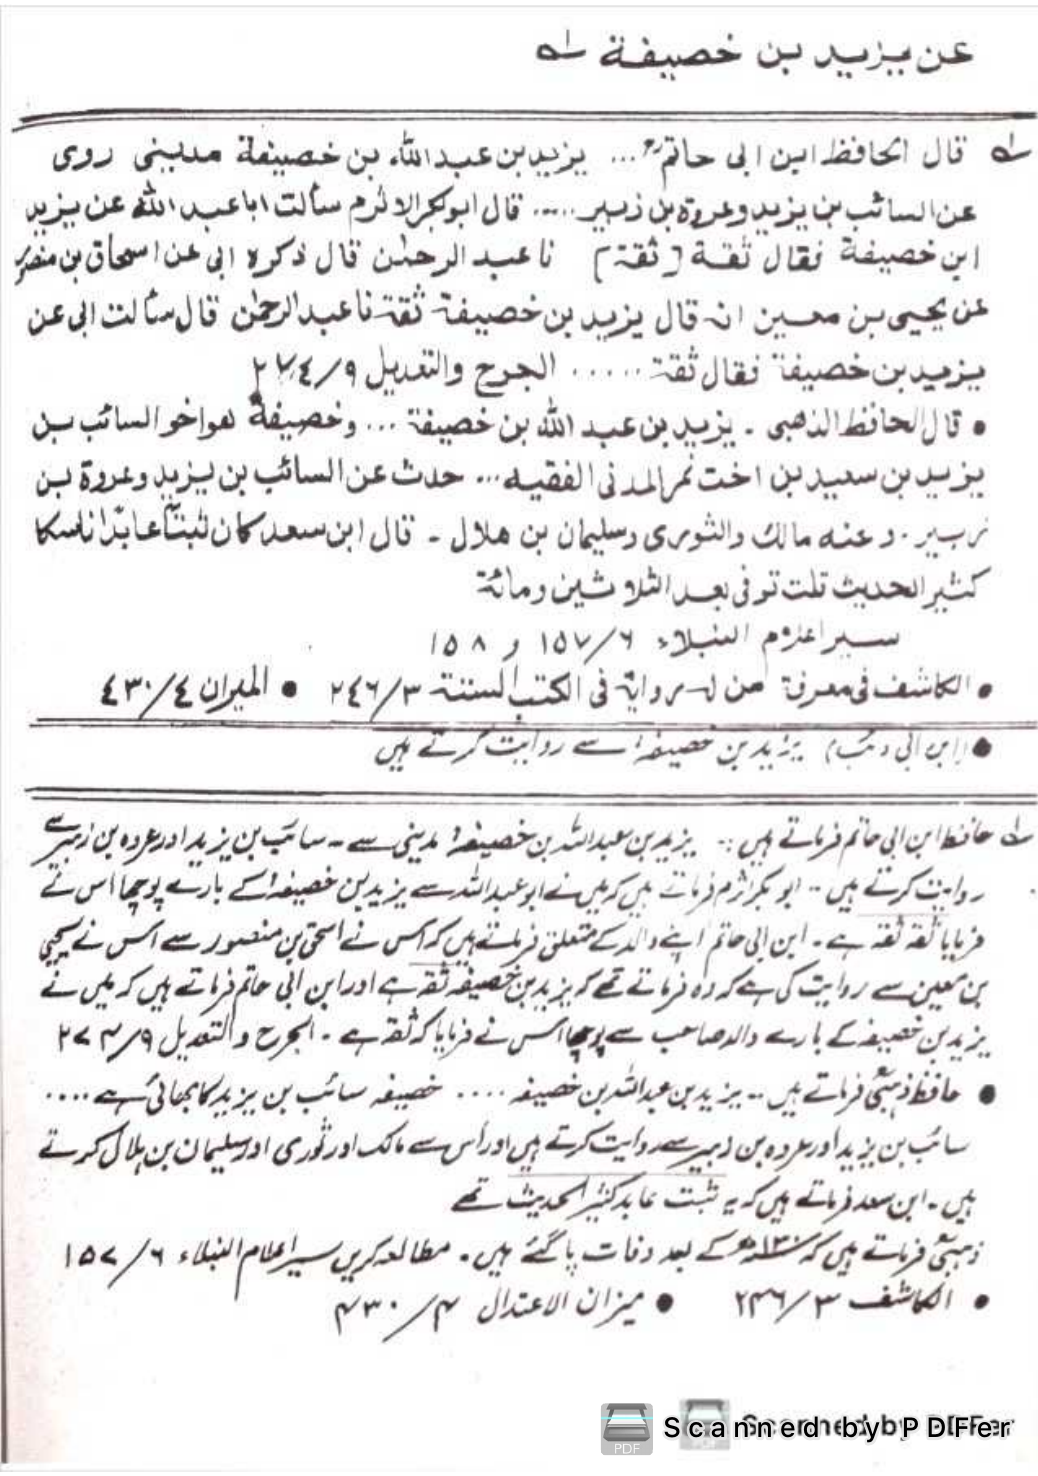 عن يزيد بن خصيفة لـه
لـه قال الحافظ ابن ابى حاتم ... يزيد بن عبد الله بن خصيفة مدينى روى
عن السائب بن يزيد وعروة بن زبير ..... قال ابوبكر الاثرم سألت ابا عبد الله عن يزيد
ابن خصيفة فقال ثقة [ثقة] نا عبد الرحمٰن قال ذكره ابى عن اسحاق بن منصور
عن يحيى بن معين انه قال يزيد بن خصيفة ثقة نا عبد الرحمٰن قال سألت ابى عن
يزيد بن خصيفة فقال ثقة ..... الجرح والتعديل ٩/٢٧٤
• قال الحافظ الذهبى - يزيد بن عبد الله بن خصيفة ... وخصيفة هو اخو السائب بن
يزيد بن سعيد بن اخت نمر المدنى الفقيه ... حدث عن السائب بن يزيد وعروة بن
زبير . وعنه مالك والثورى وسليمان بن هلال - قال ابن سعد كان ثبتاً عابداً ناسكا
كثير الحديث قلت توفى بعد الثلاثين ومائة
سير اعلام النبلاء ٦/١٥٧ و ١٥٨
• الكاشف فى معرفة من له رواية فى الكتب الستة ٣/٢٤٦ • الميزان ٤/٤٣٠
• (ابن ابی ذئب) یزید بن خصیفہ سے روایت کرتے ہیں
لـه حافظ ابن ابی حاتم فرماتے ہیں :- یزید بن عبداللہ بن خصیفہ مدینی سے - سائب بن یزید اور عروہ بن زبیر سے
روایت کرتے ہیں -- ابوبکر اثرم فرماتے ہیں کہ میں نے ابو عبداللہ سے یزید بن خصیفہ کے بارے پوچھا اس نے
فرمایا ثقہ ثقہ ہے - ابن ابی حاتم اپنے والد کے متعلق فرماتے ہیں کہ اس نے اسحٰق بن منصور سے اس نے یحییٰ
بن معین سے روایت کی ہے کہ وہ فرماتے تھے کہ یزید بن خصیفہ ثقہ ہے اور ابن ابی حاتم فرماتے ہیں کہ میں نے
یزید بن خصیفہ کے بارے والد صاحب سے پوچھا اس نے فرمایا کہ ثقہ ہے - الجرح والتعدیل ۹/۲۷۴
• حافظ ذہبیؒ فرماتے ہیں -- یزید بن عبداللہ بن خصیفہ .... خصیفہ سائب بن یزید کا بھائی ہے ....
سائب بن یزید اور عروہ بن زبیر سے روایت کرتے ہیں اور اس سے مالک اور ثوری اور سلیمان بن ہلال کرتے
ہیں - ابن سعد فرماتے ہیں کہ یہ ثبت عابد کثیر الحدیث تھے
ذہبیؒ فرماتے ہیں کہ ۱۳۰ھ کے بعد وفات پا گئے ہیں - مطالعہ کریں سیر اعلام النبلاء ۶/۱۵۷
• الکاشف ۳/۲۴۶ • میزان الاعتدال ۴/۴۳۰
Scanned by PDFer